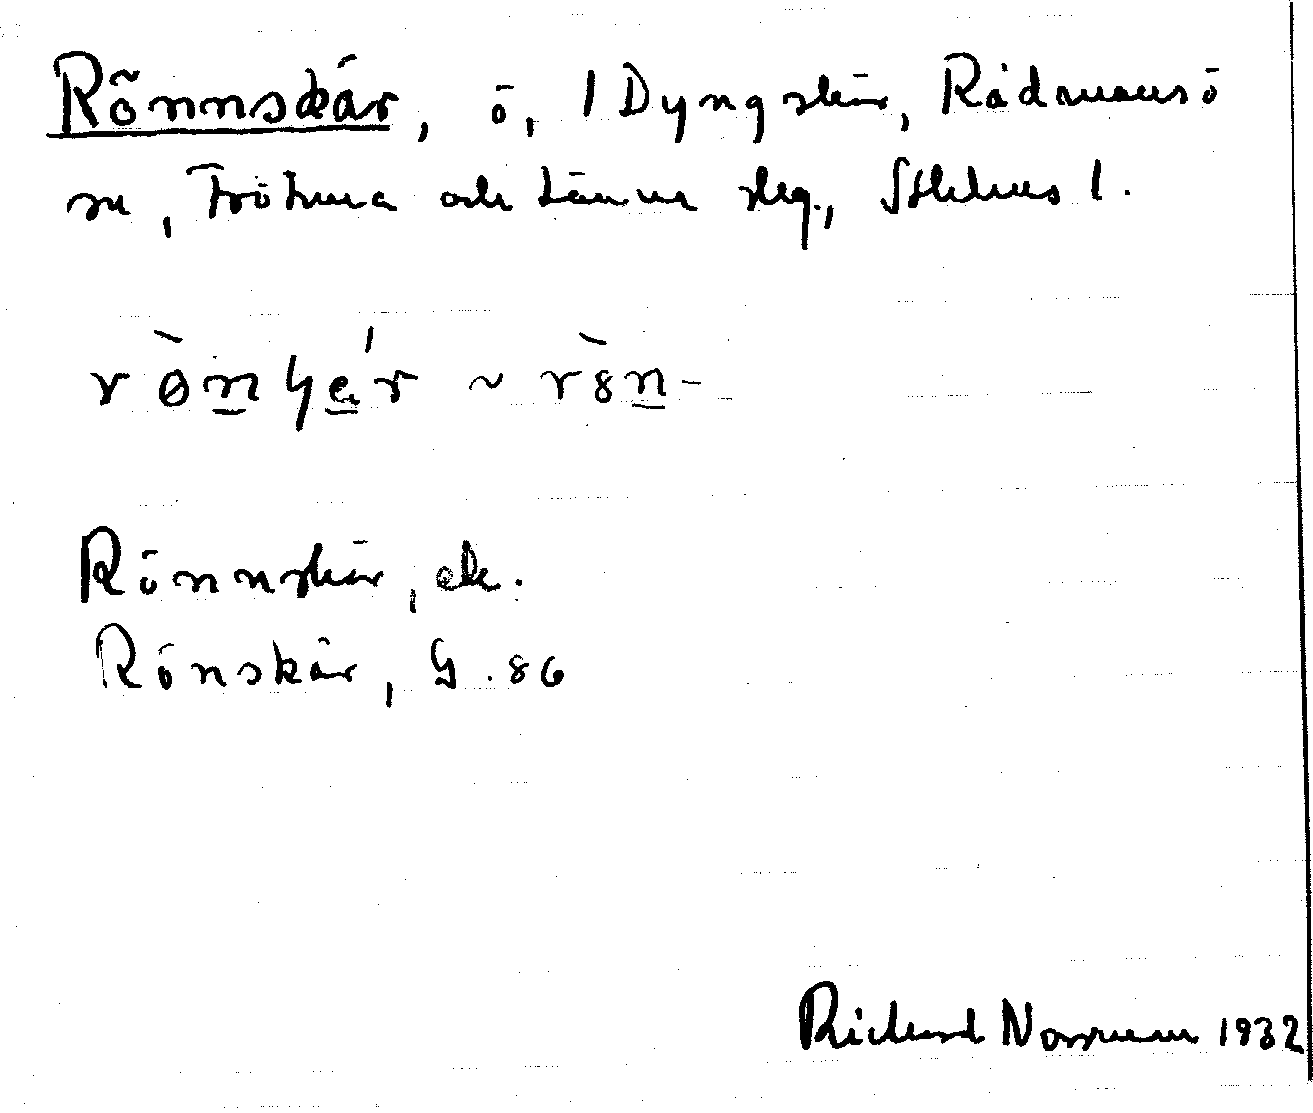 Rönnskär, ö, 1 Dyngskär, Rådmansö
sn, Frötuna och Länna skg., Sthlms l.
rø̀nʃä́r ~ rö̀n-
Rönnskär, ek.
Rönskär, G. 86
Rickard Norrman 1932